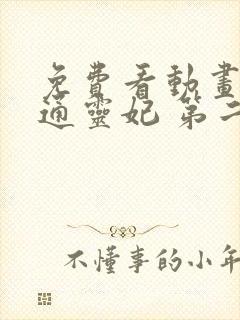 免費看動畫
通靈妃 第二
不懂事的小年